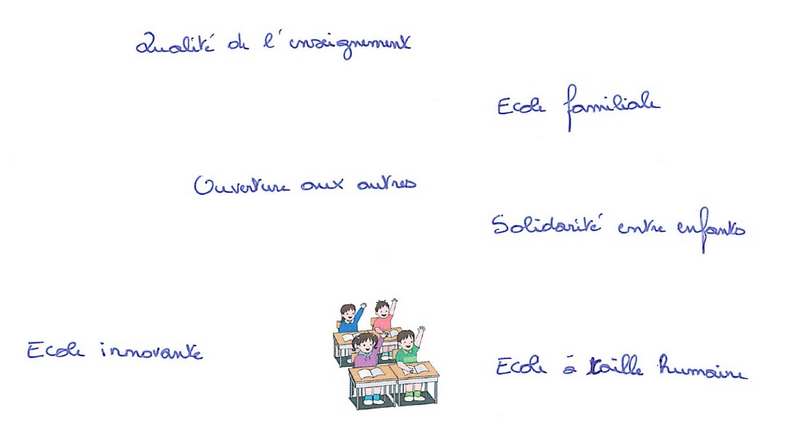 Qualité de l'enseignement
Ecole familiale
Ouverture aux autres
Solidarité entre enfants
Ecole innovante
Ecole à taille humaine